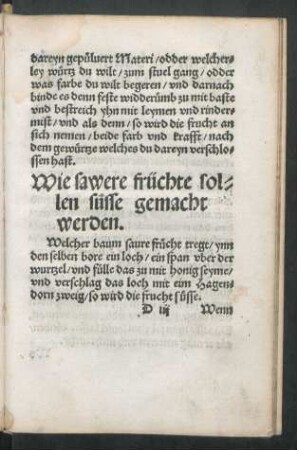 dareyn gepůluert Materi/odder welcher⸗
ley würtz du wilt/zum stuel gang/odder
was farbe du wilt begeren/und darnach
binde es denn feste widderümb zu mit baste
und bestreich yhn mit leymen und rinder⸗
mist/und als denn/so wird die frucht an
sich nemen/beide farb und krafft/nach
dem gewürtze welches du dareyn verschlo⸗
ssen hast.
Wie sawere früchte sol⸗
len süsse gemacht
werden.
Welcher baum saure früche tregt/ynn
den selben bore ein loch/ein span vber der
wurtzel/und fülle das zu mit honig seyme/
und verschlag das loch mit ein Hagen⸗
dorn zweig/so wird die frucht süsse.
D iij Wenn